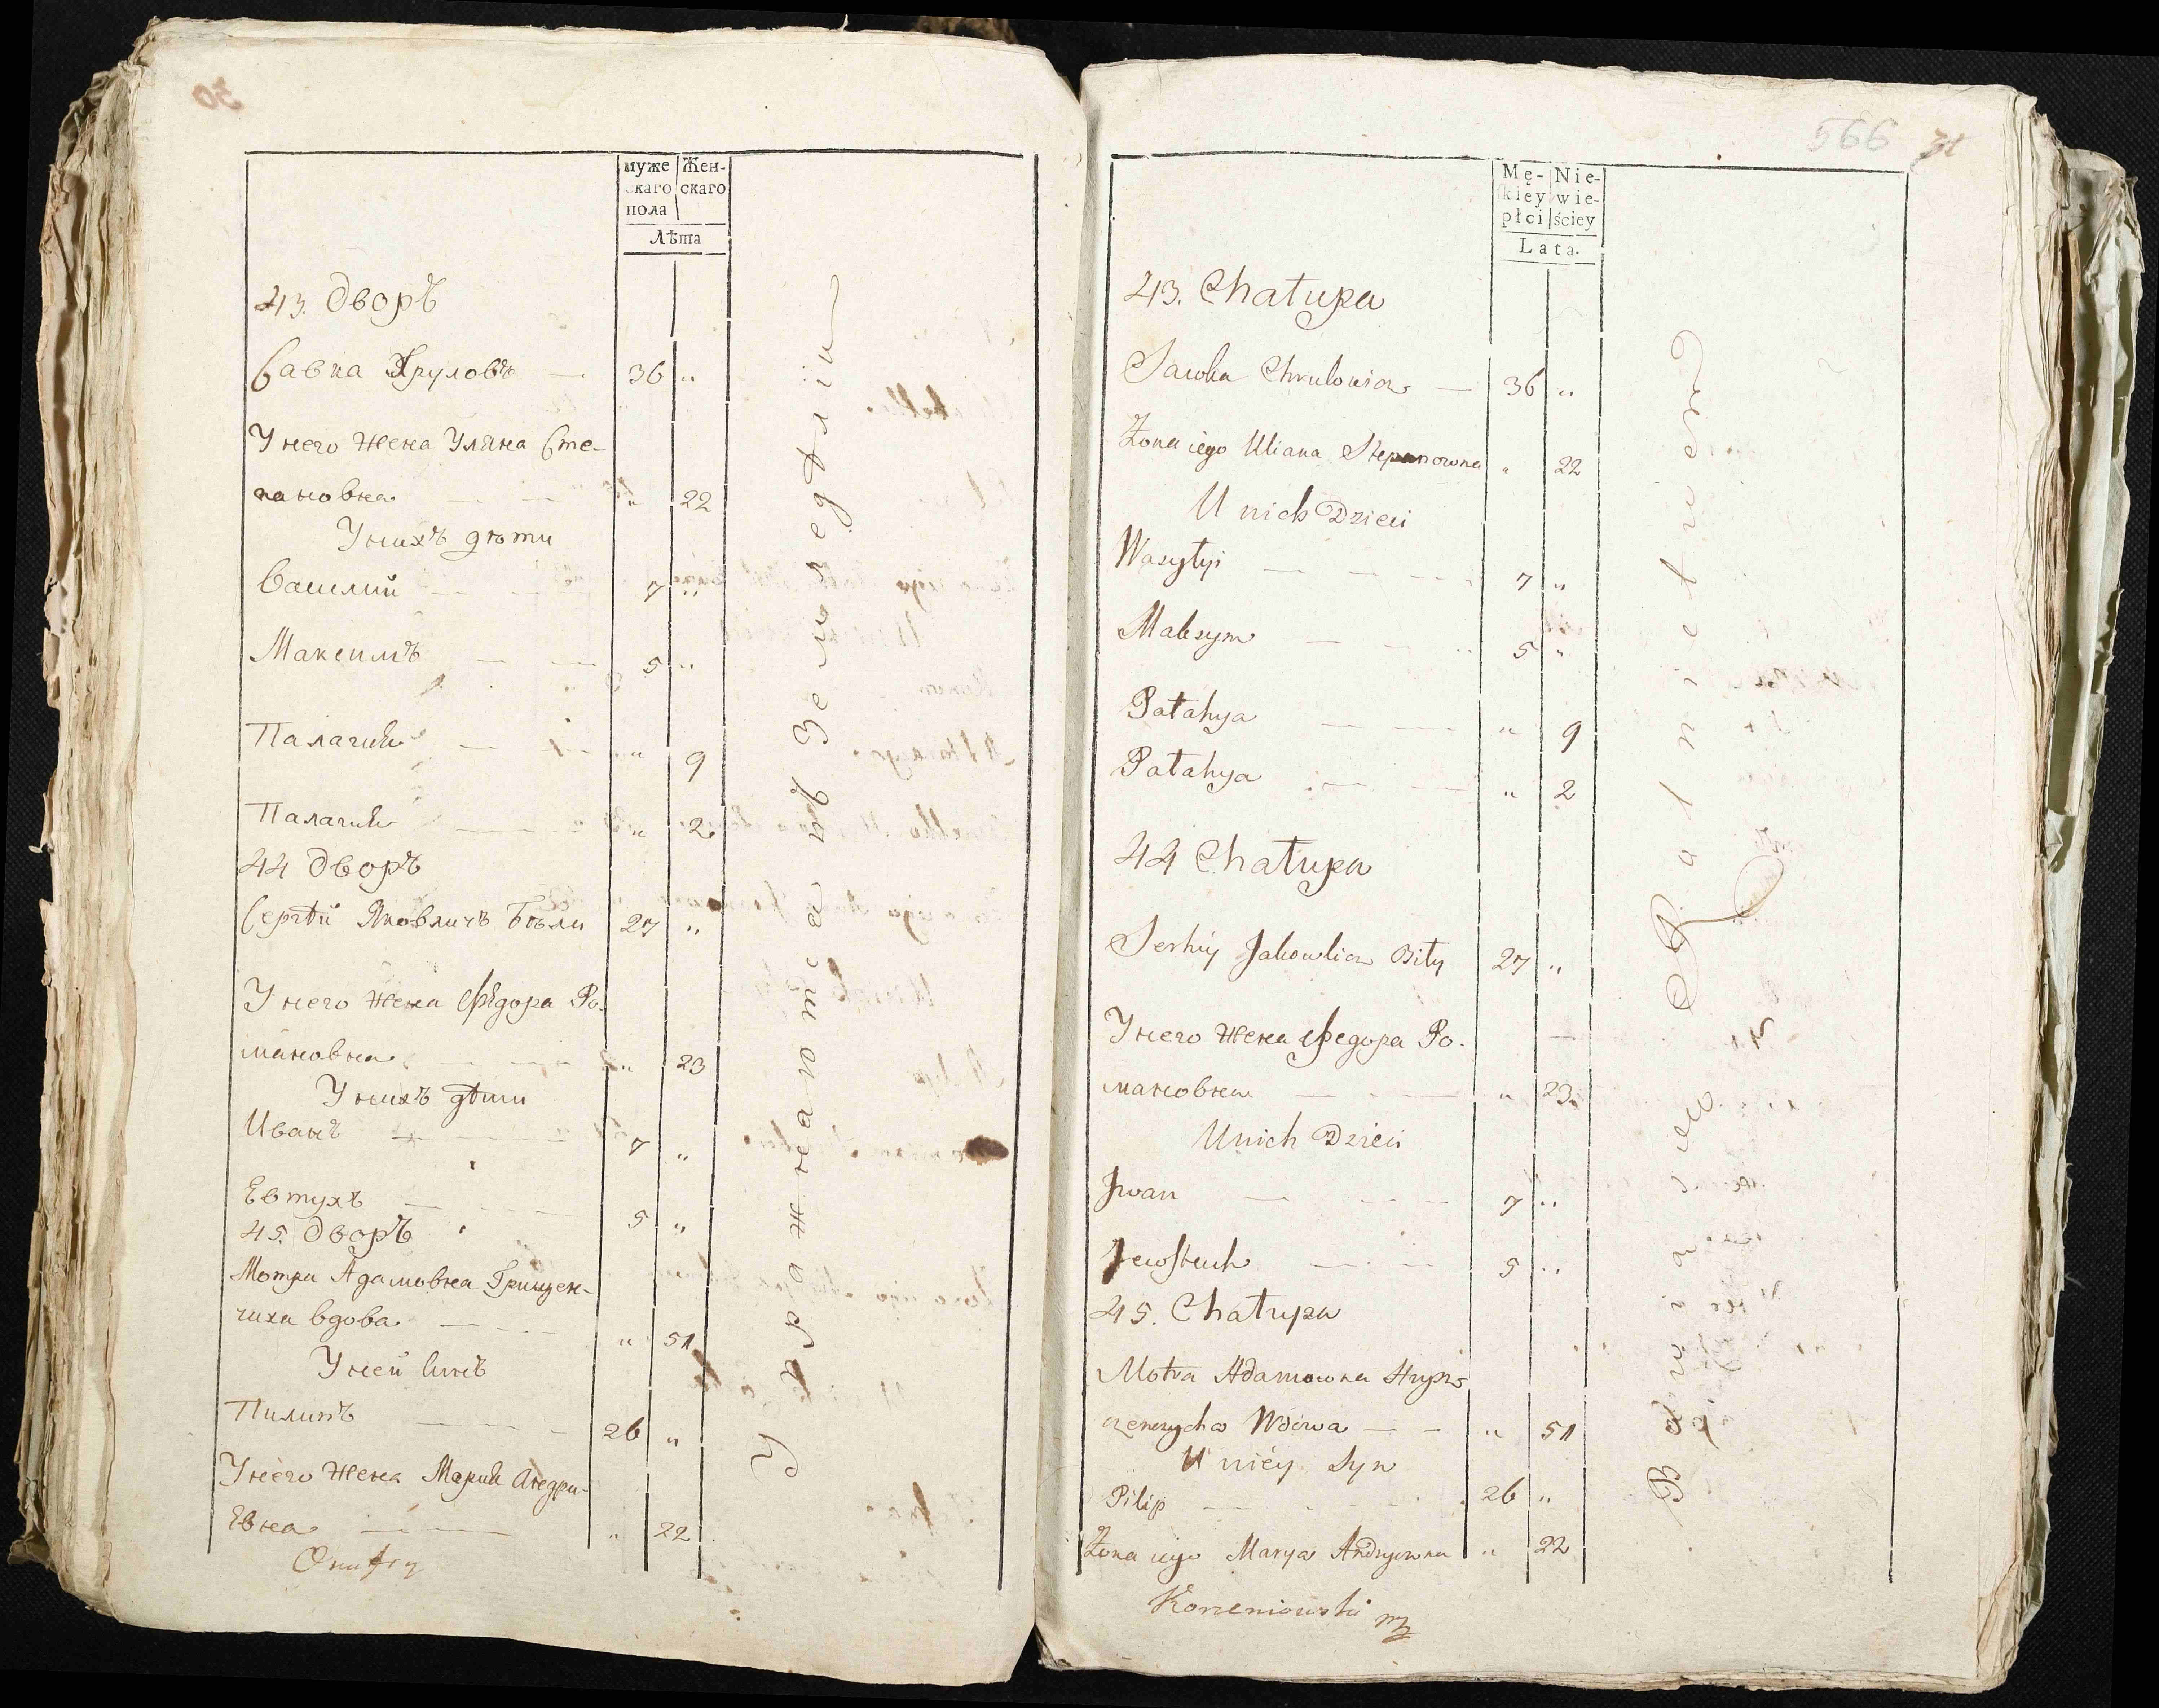 30
муже
скаго
пола
Жен-
скаго
Лѣта
43. дворъ
Савка Хруловъ — 36 „
У него жена Уляна Сте-
пановна — — „ 22
У нихъ дѣти
Василий — — 7 „
Максимъ — — 5 „
Палагия — — „ 9
Палагия — — „ 2
44 дворъ
Сергѣй Яковличъ Бѣли 27 „
У него жена Федора Ро-
мановна — — „ 23
У нихъ дѣти
Иванъ — — 7 „
Евтухъ — — 5 „
45. дворъ
Мотра Адамовна Грищен-
чиха вдова — — „ 51
У ней синъ
Пилипъ — — 26 „
У него жена Мария Андри-
Евна — — „ 22
Упражняются въ Земледѣлiи
566 31
Mę-
skiey
płci
Nie-
wie-
ściey
Lata.
43. Chałupa
Sawka Chrulowicz — 36 „
Żona iego Uliana Stepanowna „ 22
U nich Dzieci
Wasyłyi — — 7 „
Maksym — — 5 „
Pałahya — — „ 9
Pałahya — — „ 2
44 Chałupa
Serhiy Jakowlicz Biły 27 „
У него жена Федора Ро-
мановна — — „ 23
U nich Dzieci
Iwan — — 7 „
Jewstuch — — 5 „
45. Chałupa
Motra Adamowna Hrysz-
czenczycha Wdowa — — „ 51
U niéy Syn
Pilip — — 26 „
Żona iego Marya Andryowna „ 22
Korzeniowski mp
Bawią się Rolnictwem